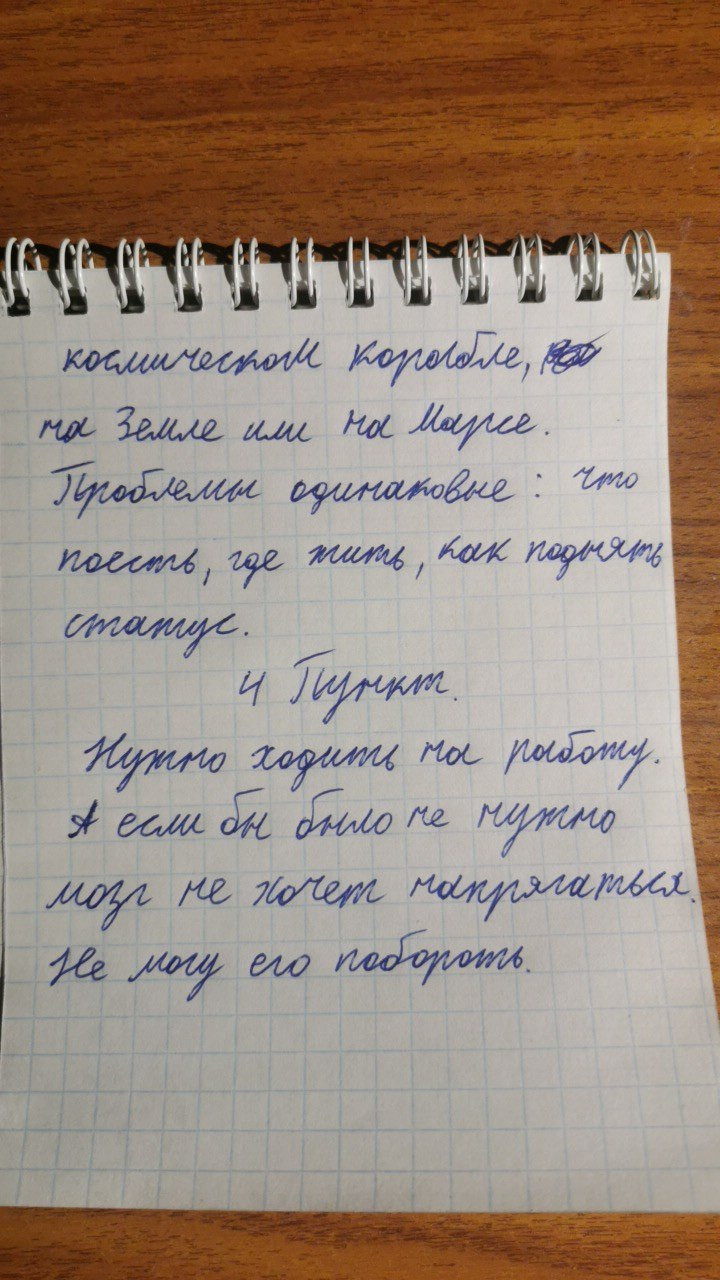 космическом корабле,
на Земле или на Марсе.
Проблемы одинаковые: что
поесть, где жить, как поднять
статус.
4 Пункт.
Нужно ходить на работу.
А если бы было не нужно
мозг не хочет напрягаться.
Не могу его побороть.